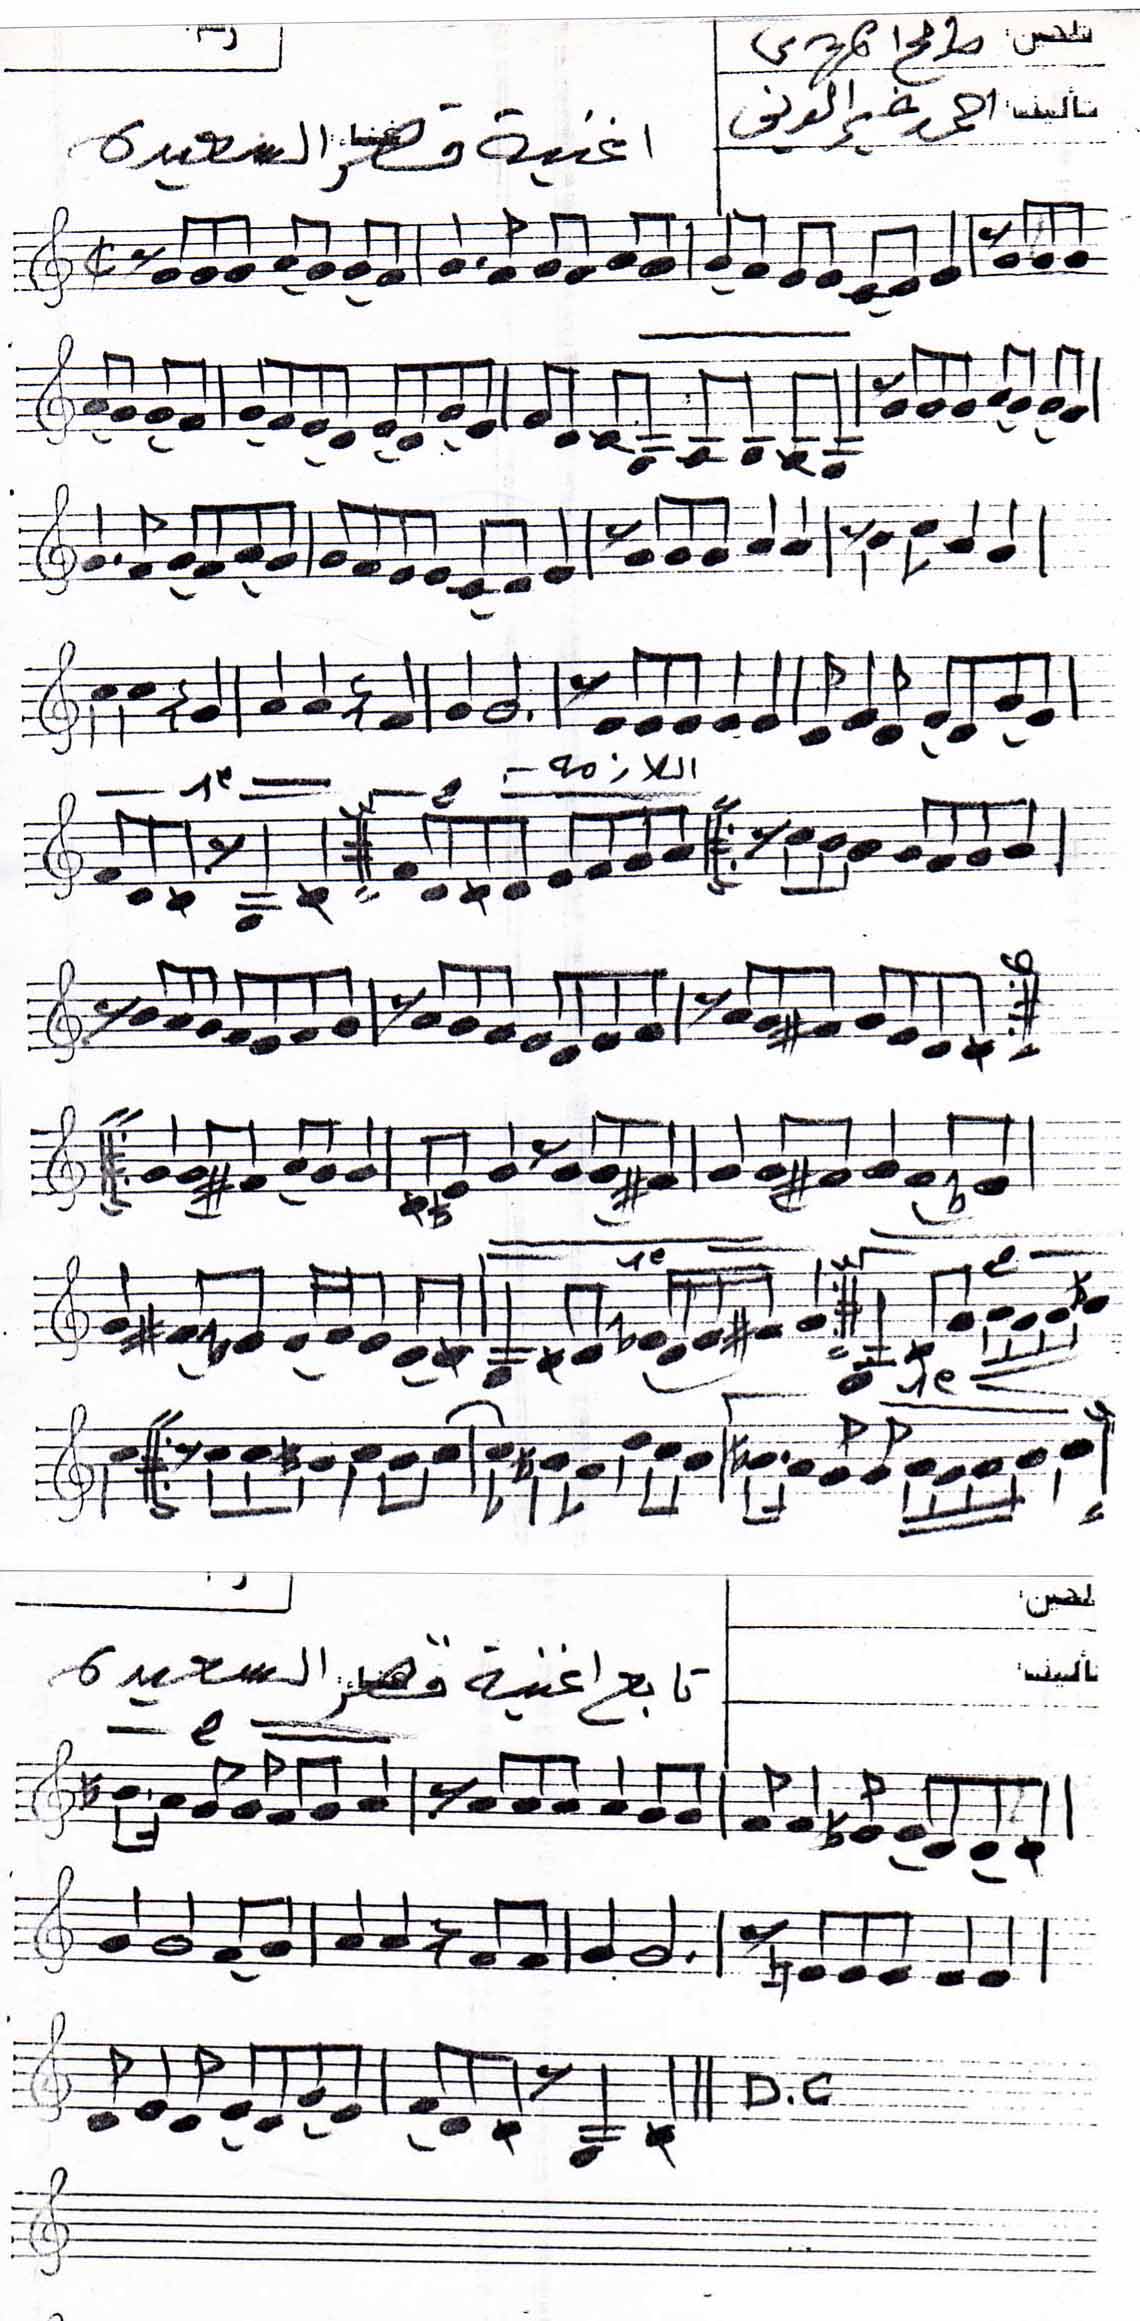 تلحين: صالح المهدي
تأليف: احمد خير الدين
اغنية قصر السعيدة
اللازمة
D.C
تلحين:
تأليف:
تابع اغنية قصر السعيدة